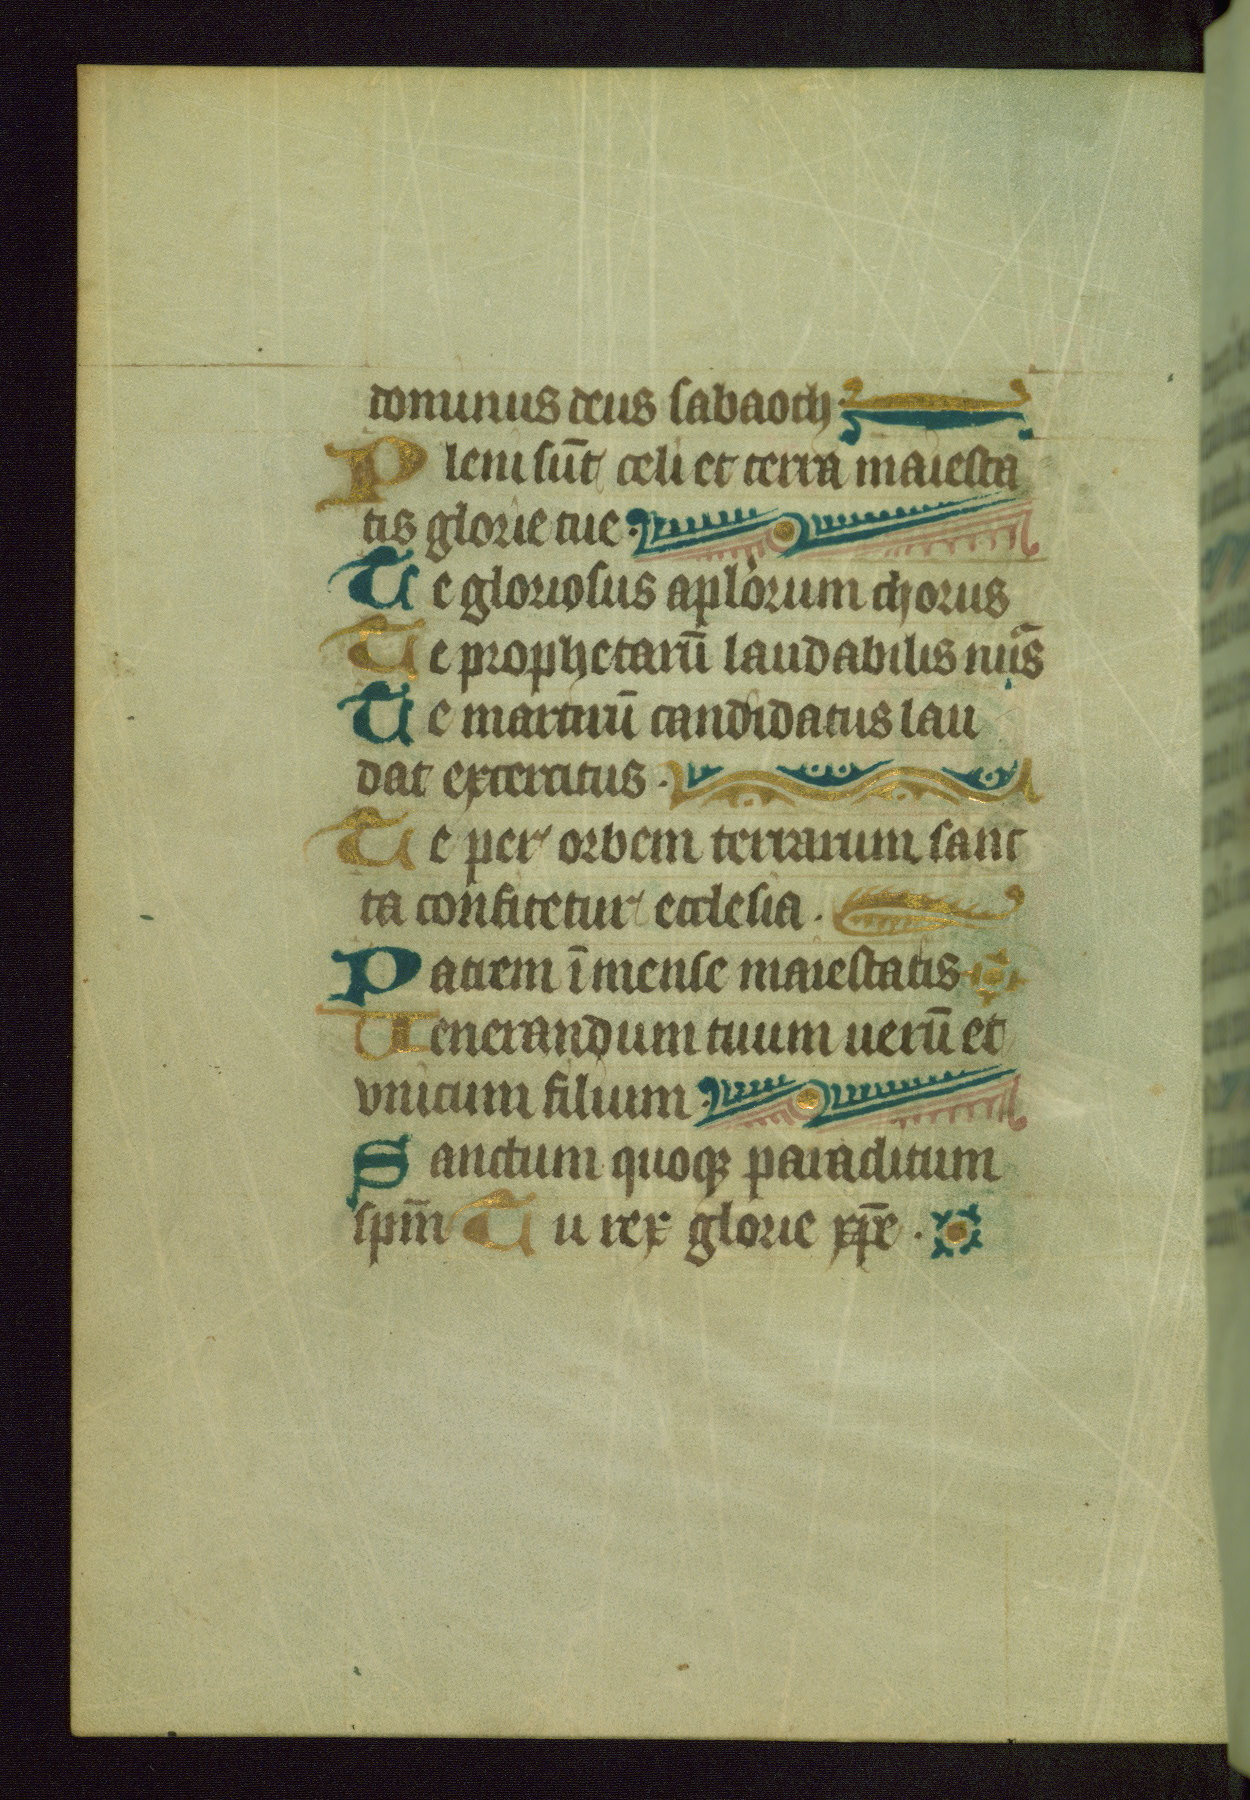 dominus deus sabaoth
Pleni sūt celi et terra maiesta
tis glorie tue
Te gloriosus aplorum chorus
Te prophetarū laudabilis nūs
Te martirū candidatus lau
dat excercitus.
Te per orbem terrarum sanc
ta confitetur ecclesia.
Patrem īmense maiestatis
Uenerandum tuum uerū et
vnicum filium
Sanctum quoqꝫ paraclitum
spm̄ Tu rex glorie xp̄e.